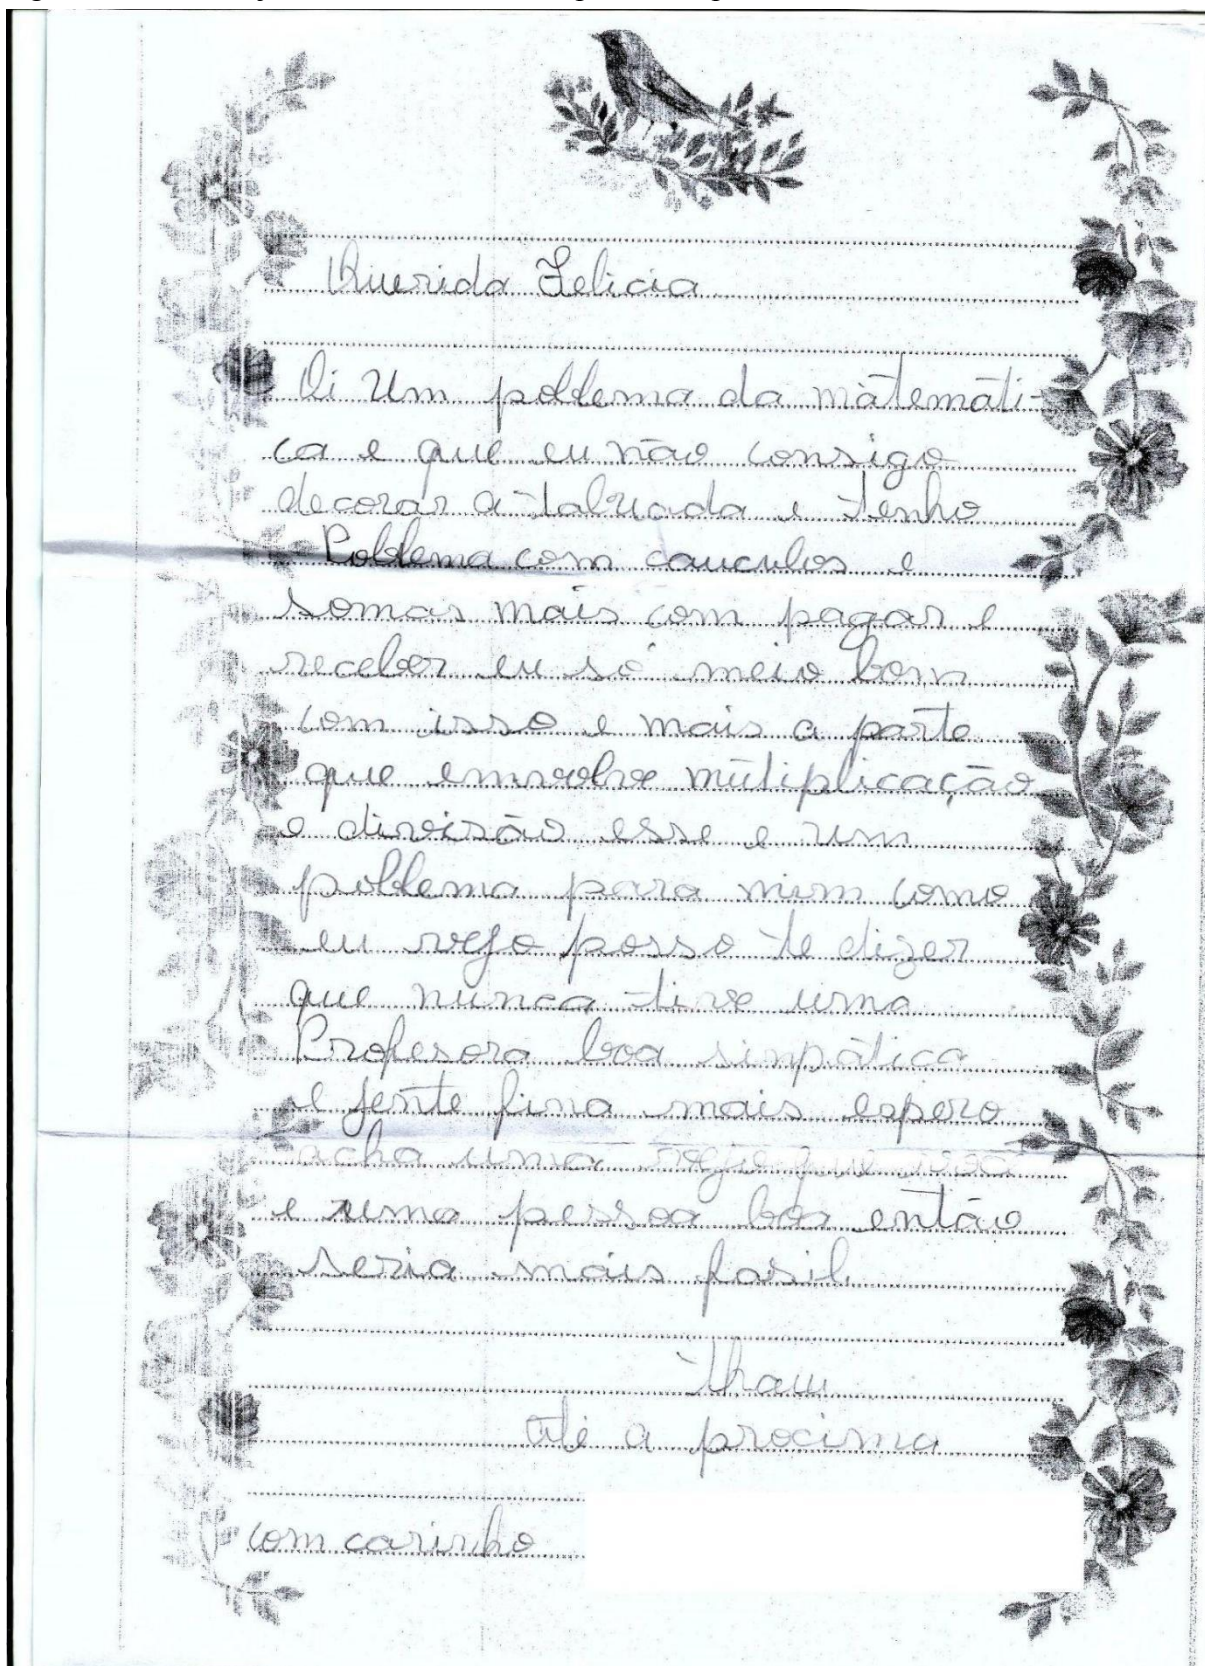 Querida Felicia
Oi Um poblema da matemáti-
ca e que eu não consigo
decorar a tabuada e tenho
Poblema com cauculos e
somas mais com pagar e
receber eu só meio bom
com isso e mais a parte
que emvolve mutiplicação
e divisão esse e um
poblema para mim como
eu vejo posso te dizer
que nunca tive uma
Profesora boa simpática
e jente fina mais espero
acha uma vejo que você
e uma pessoa boa então
seria mais fasil
thau
até a procima
com carinho